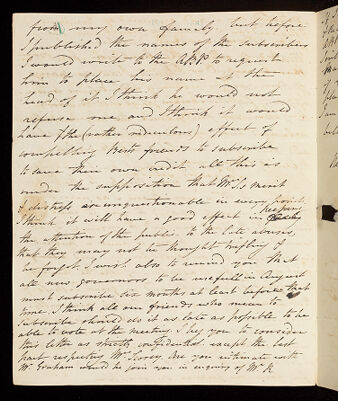 from my own family. but before
I published the names of the subscribers
I would write to the ABP to request
him to place his name at the
head of it I think he would not
refuse me and I think it would
have the (rather ridiculous) effect of
compelling Best's friends to subscribe
to save their own credit all this is
under the supposition that Mr. T's merit
& distress are unquestionable in every point.
I think it will have a good effect in keeping
the attention of the public to the late abuses,
that they may not be thought trifling &
be forgot. I wish also to remind you that
all new governors to be useful in August
must subscribe six months at least before that
time. I think all our friends who mean to
subscribe should do it as late as possible to be
able to vote at the meeting I beg you to consider
this letter as strictly confidential. except the last
part respecting Mr. Are you intimate with
Mr. Graham would he join you in enquiry of Mr. R